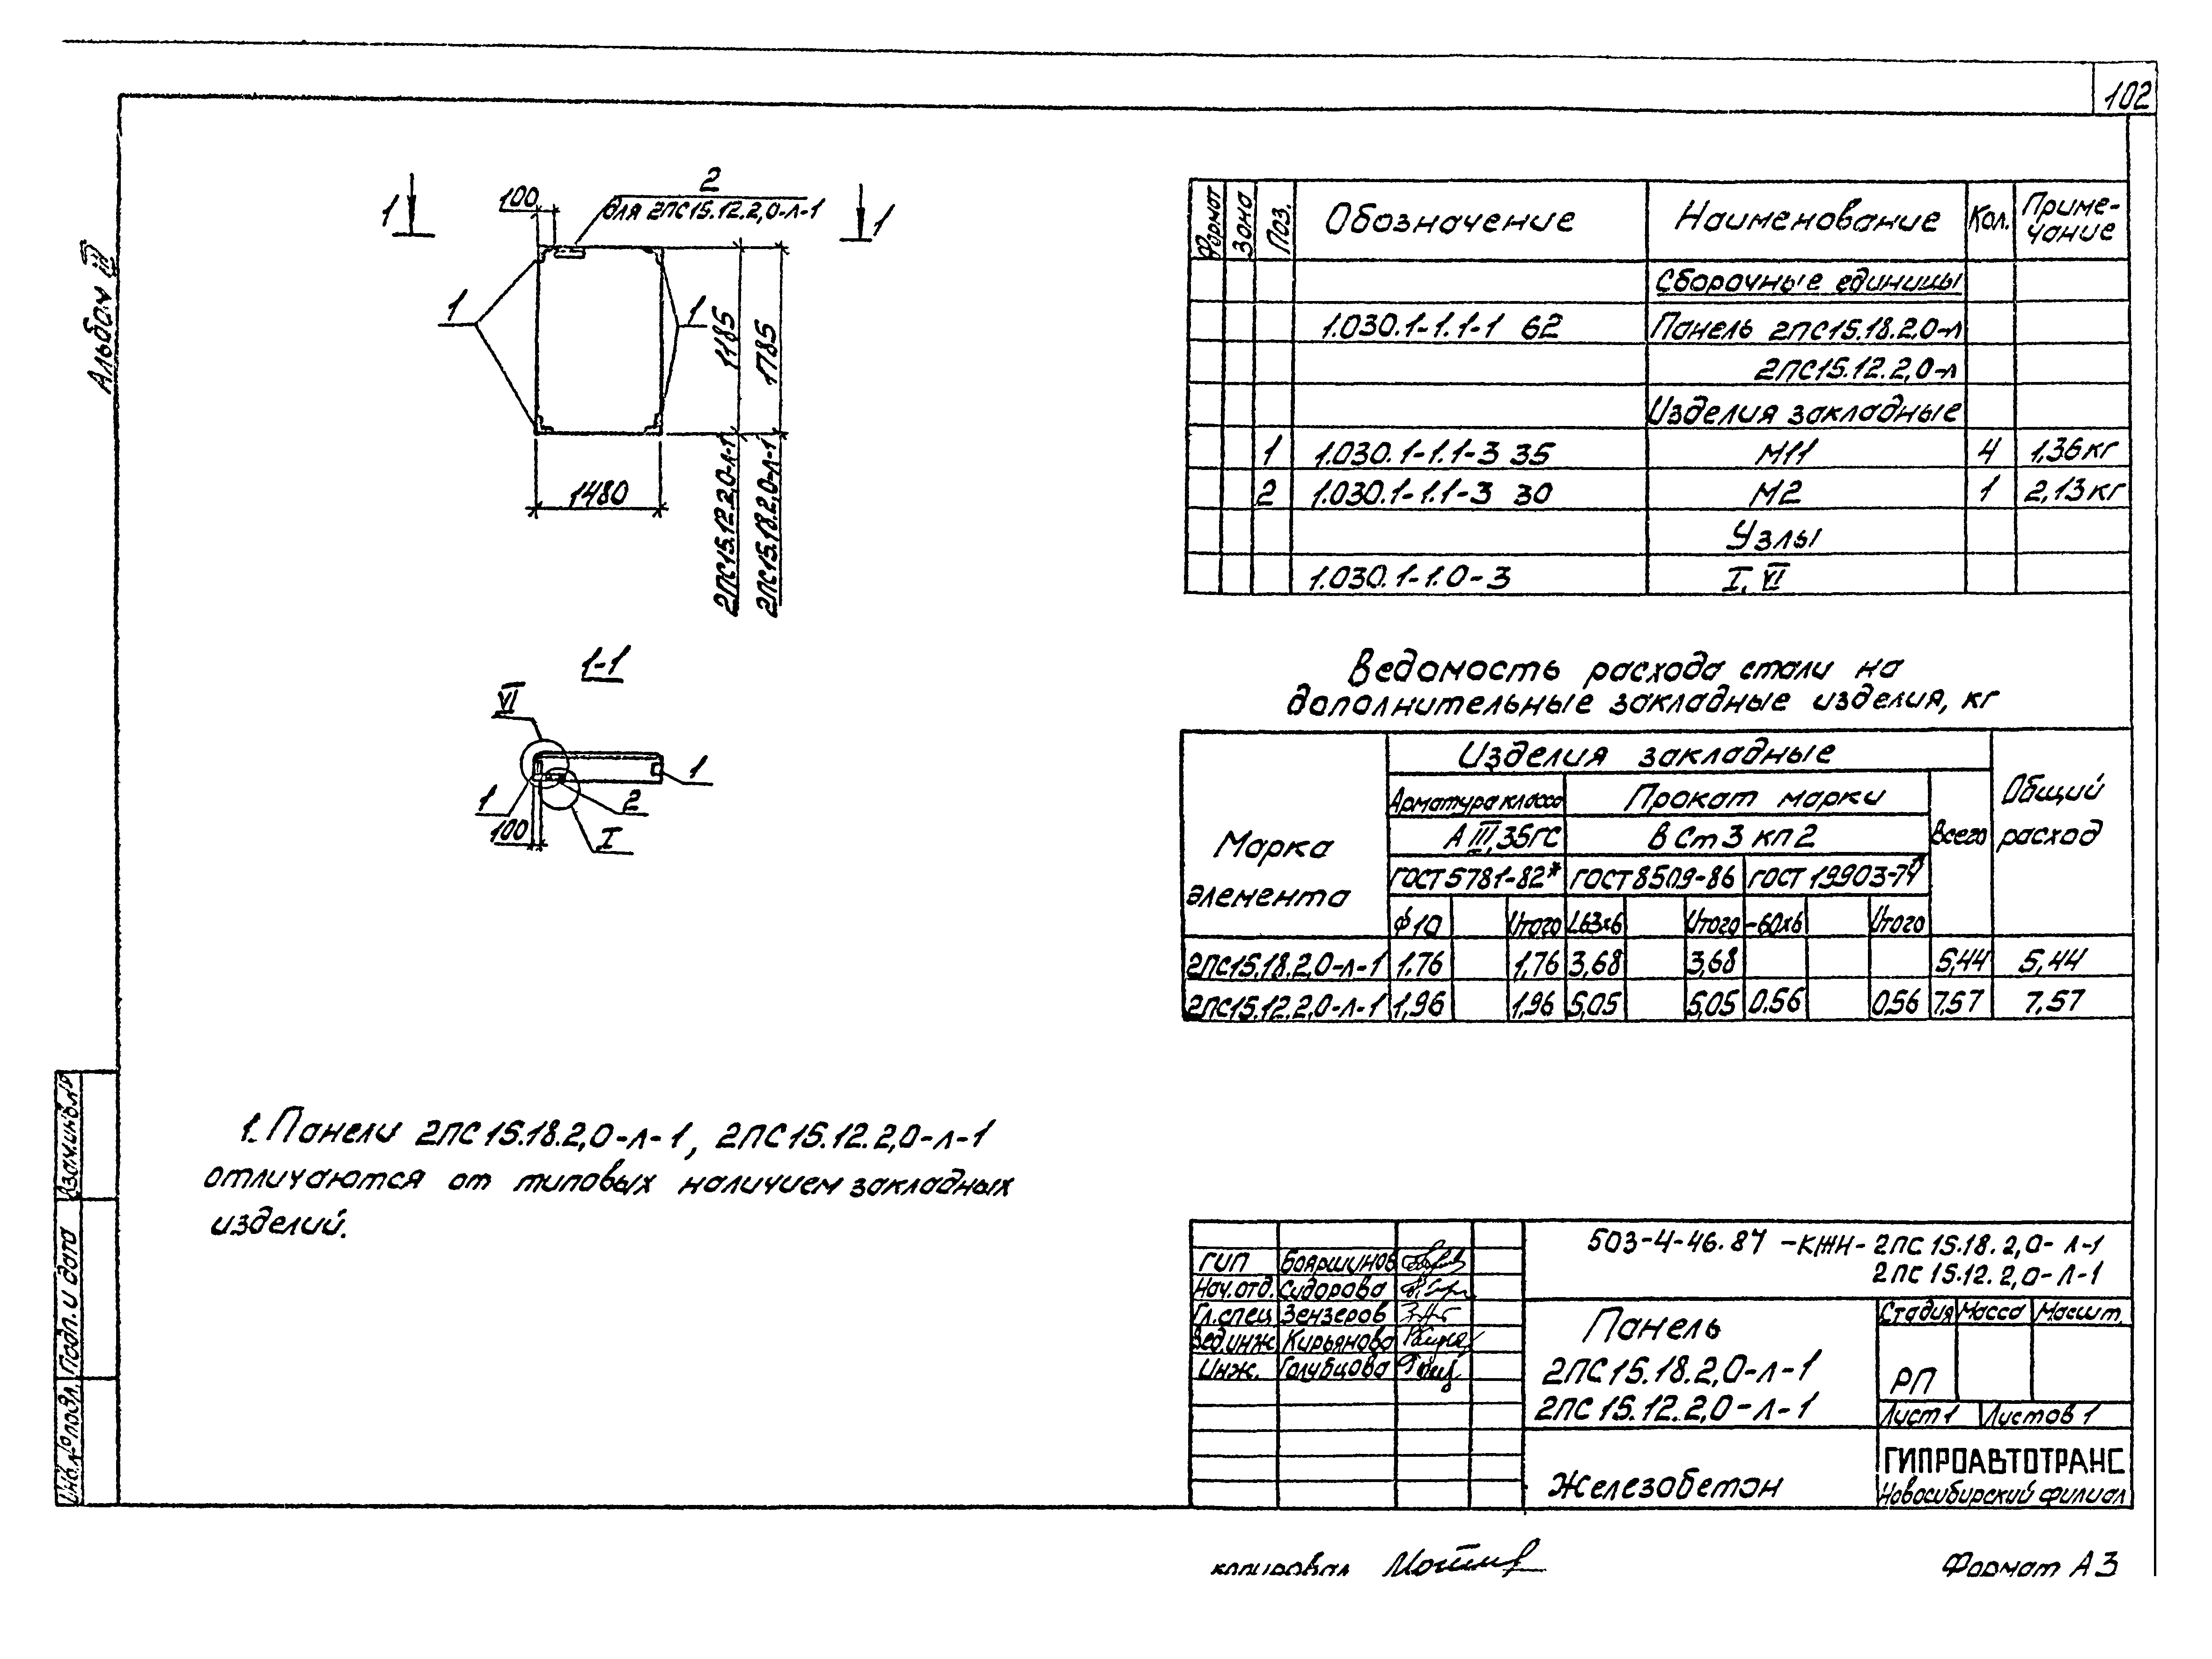 102
Альбом III
1
1
100
2
для 2ПС15.12.2,0-л-1
1
1
1185
1785
1480
2ПС15.12.2,0-л-1
2ПС15.18.2,0-л-1
1-1
VI
1
1
2
100
I
Формат Зона Поз. Обозначение Наименование Кол. Приме-
чание
Сборочные единицы
1.030.1-1.1-1 62 Панель 2ПС15.18.2,0-л
2ПС15.12.2,0-л
Изделия закладные
1 1.030.1-1.1-3 35 М11 4 1,36кг
2 1.030.1-1.1-3 30 М2 1 2,13кг
Узлы
1.030.1-1.0-3 I, VI
Ведомость расхода стали на
дополнительные закладные изделия, кг
Марка
элемента
Изделия закладные
Общий
расход
Арматура класса Прокат марки
Всего
А III, 35ГС ВСт3кп2
ГОСТ5781-82* ГОСТ8509-86 ГОСТ 19903-74*
ф10 Итого L63х6 Итого -60х6 Итого
2ПС15.18.2,0-л-1 1.76 1,76 3,68 3,68 5,44 5,44
2ПС15.12.2,0-л-1 1,96 1,96 5,05 5,05 0.56 0,56 7,57 7,57
1. Панели 2ПС15.18.2,0-л-1, 2ПС15.12.2,0-л-1
отличаются от типовых наличием закладных
изделий.
Взам.инв.№
Подп. и дата
Инв.№подл.
503-4-46.87 -КЖИ- 2ПС 15.18.2,0-Л-1
2ПС 15.12.2,0-Л-1
ГИП Бояршинов
Нач.отд. Сидорова
Гл.спец. Зензеров
Вед.инж. Кирьянова
Инж. Голубцова
Панель
2ПС15.18.2,0-л-1
2ПС15.12.2,0-л-1
Стадия Масса Масшт.
РП
Лист 1 Листов 1
Железобетон
ГИПРОАВТОТРАНС
Новосибирский филиал
копировал
Формат А3